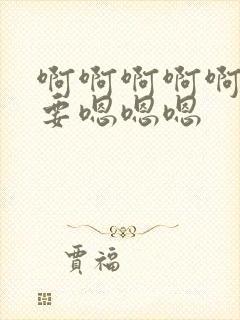 啊啊啊啊啊
要嗯嗯嗯
賈福